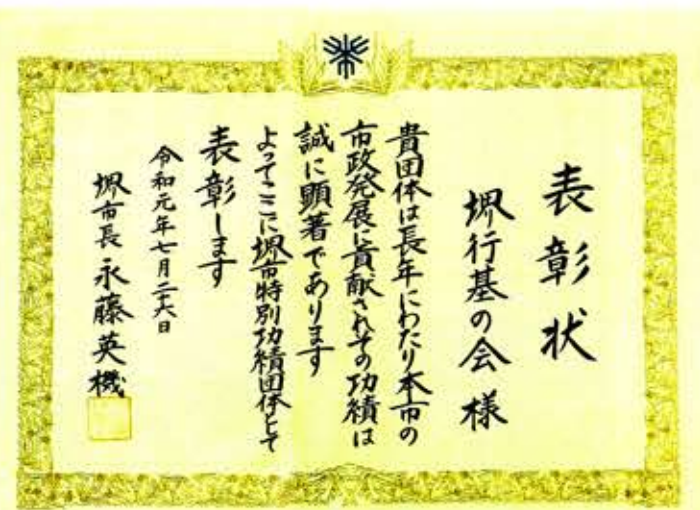 表彰状
堺行基の会 様
貴団体は長年にわたり本市の
市政発展に貢献されその功績は
誠に顕著であります
よってここに堺市特別功績団体として
表彰します
令和元年七月二十六日
堺市長 永藤英機